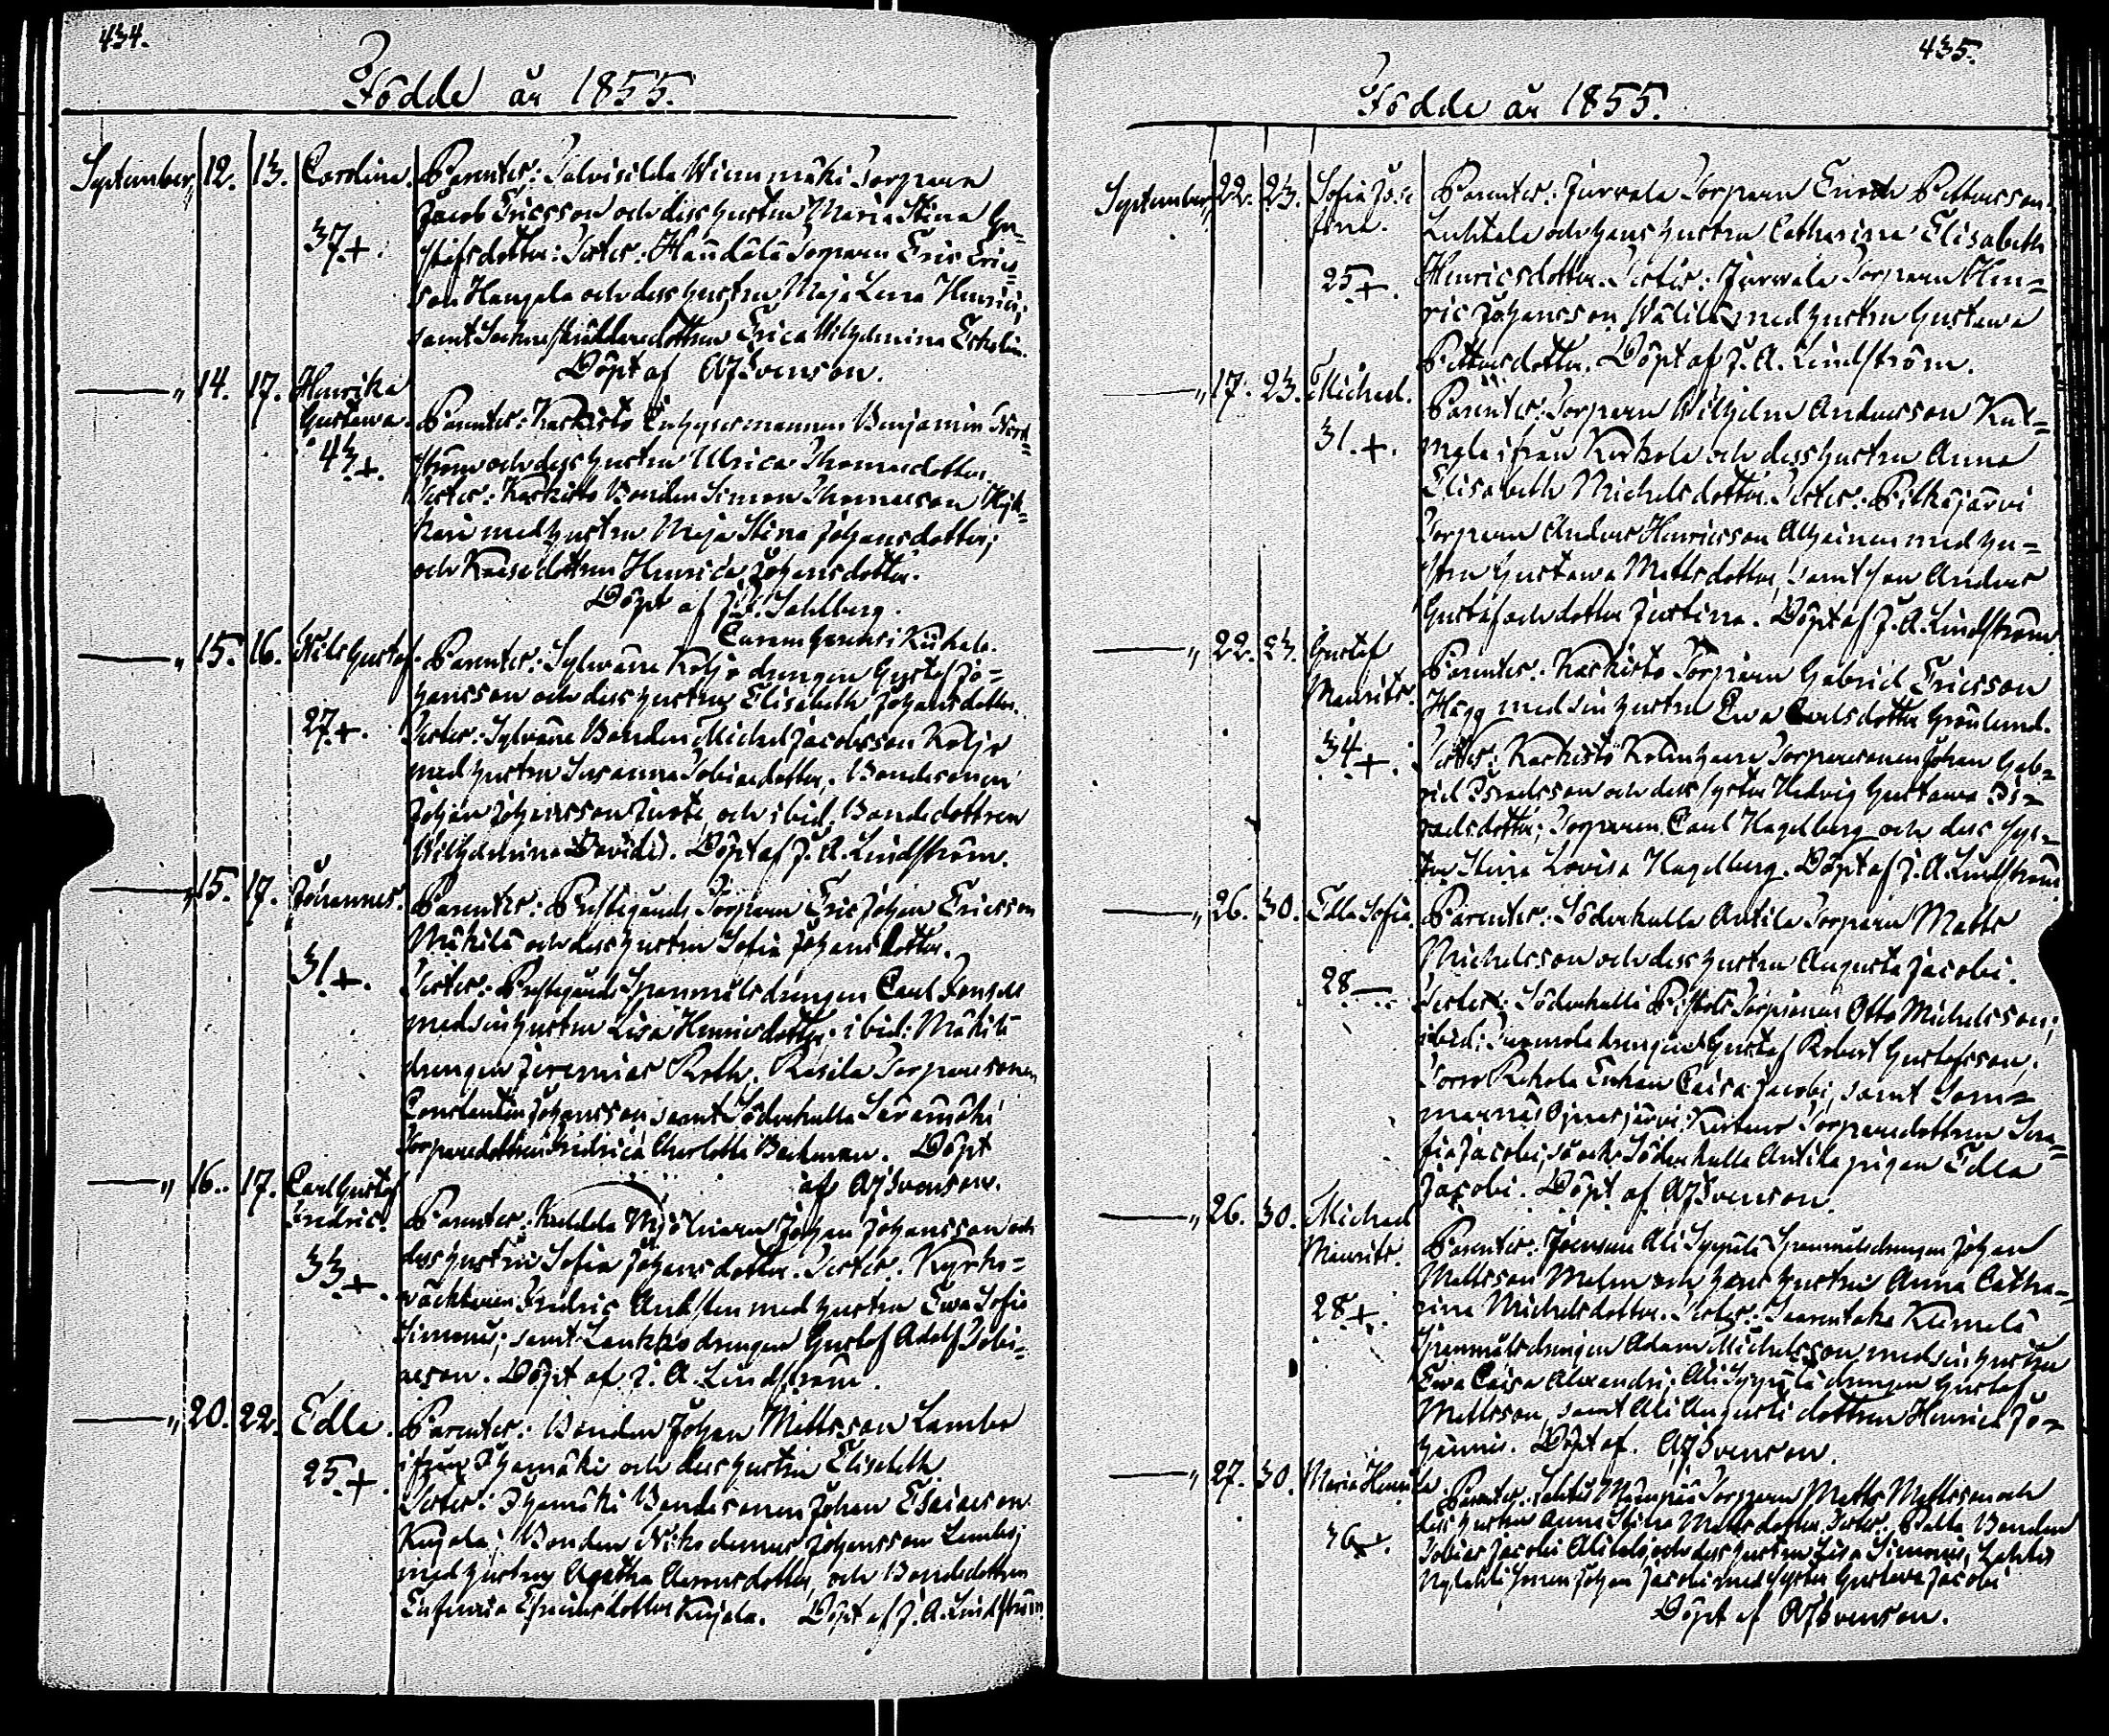 434.
Födde år 1855.
September 12. 13. Carolina. Parentes: Winnmäki Torparn
Jacob Ericsson och dess hustru Maria Stina Gu-
37+. stafsdotter: Testes: Torparn Eric Erics-
son Hangala och dess hustru Maja Lena Henrics,
samt Erica Wilhelmina
Döpt af AJSvenson.
— 14. 17. Henrika
Gustawa. Parentes: Karkisto Benjamin
43+. ström och dess hustru Ulrica Thomasdotter.
Testes: Karkisto Bonden Simon Thomasson
med hustru Maja Stina Johansdotter;
och dottren Henrica Johansdotter.
Döpt af Sahlberg.
— 15. 16. Nils Gustaf. Parentes: Sylwäna Koljo drengen Gustaf Jo-
hansson och dess hustru Elisabeth Johansdotter.
27+. Testes: Sylwäna Bonden Michel Jacobsson Koljo
med hustru Susanna Tobiaedotter, Bondesonen
Johan Johansson och ibid. Bondedottren
Wilhelmina Davidis. Döpt af J. A. Lindström.
— 15. 17. Johannes. Parentes: Prestegårds Torparn Eric Johan Ericsson
Mäkilä och dess hustru Sofia Johansdotter.
31+. Testes: Prestegårds Spanmålsdrengen Carl
med sin hustru Lisa Henricsdotter; ibid: Mäkilä
drengen Jeremias Roth, Rasila Torparesonen
Constantin Johansson samt Söderkulla
Torparedottren Fredrica Charlotta Backman. Döpt
af AJSvenson.
— 16. 17. Carl Gustaf
Fredric. Parentes: Mjölnaren Johan Johansson och
dess hustru Sofia Johansdotter. Testes: Kyrko-
33+. wäcktaren Fredric med hustru Ewa Sofia
Simons; samt drengen Gustaf Adolf Tobi-
aeson. Döpt af J. A. Lindström.
— 20. 22. Edla. Parentes: Bonden Johan Mattsson Lambo
ifrån och dess hustru Elisabeth
25+. Testes: Bondesonen Johan Esaiaeson
Kujala; Bonden Nikodemus Johansson Lambo;
med hustru Agatha Aaronsdotter, och Bondedottren
Kujala. Döpt af J. A. Lindström
435.
Födde år 1855.
September 22. 23. Sofia Jose- Parentes: Jurvala Torparn Pettersson
fina. Luhtala och hans hustru Catharina Elisabeth
25+. Henricsdotter. Testes: Jurvala Torparn Hen-
ric Johansson med hustru Gustawa
Pettersdotter. Döpt af J. A. Lindström.
— 17. 23. Michael. Parentes: Torparn Wilhelm Andersson
31.+. ifrån och dess hustru Anna
Elisabeth Michelsdotter. Testes: Pitkäjärvi
Torparn Anders Henricsson med hu-
stru Gustawa Mattsdotter, samt son Anders
Gustaf och dotter Justina. Döpt af J. A. Lindström.
— 22. 23. Gustaf Parentes: Karkisto Torparn Gabriel Ericsson
Maurits. Hägg med sin hustru Ewa Carlsdotter Grönlund.
34+. Testes: Karkisto Torparesonen Johan Gab-
riel Israelsson och dess syster Hedvig Gustawa Is-
raelsdotter; Torparen Carl Hagelberg och dess sys-
ter Stina Lovisa Hagelberg. Döpt af J. A. Lindström
— 26. 30. Edla Sofia. Parentes: Söderkulla Antila Torparn Matts
Michelsson och dess hustru Augusta Jacobi.
28— Testes: Söderkulla Torparsonen Otto Michelsson;
ibid: drengen Gustaf Robert Gustafsson,
Enkan Caisa Jacobi, samt Som-
Torparedottren
Jacobi, så ock Söderkulla Antila pigan Edla
Jacobi. Döpt af AJSvenson.
— 26. 30. Michael
Maurits. Parentes: Ali Spanmålsdrengen Johan
Mattsson Malm och hans hustru Anna Catha-
28+. rina Michelsdotter. Testes:
Spanmålsdrengen Adam Michelsson med sin hustru
Ewa Caisa Alexandri; Ali drengen Gustaf
Mattsson, samt Ali dottren Henrica Jo-
hannis. Döpt af. AJSvenson.
— 27. 30. Maria Henrika Parentes: Torparn Matts Mattsson och
dess hustru Anna Stina Mattsdotter. Testes: Bonden
36+. Tobias Jacobi och dess hustru Lisa Simons,
sonen Johan Jacobi med syster Gustava Jacobi
Döpt af AJSvenson.